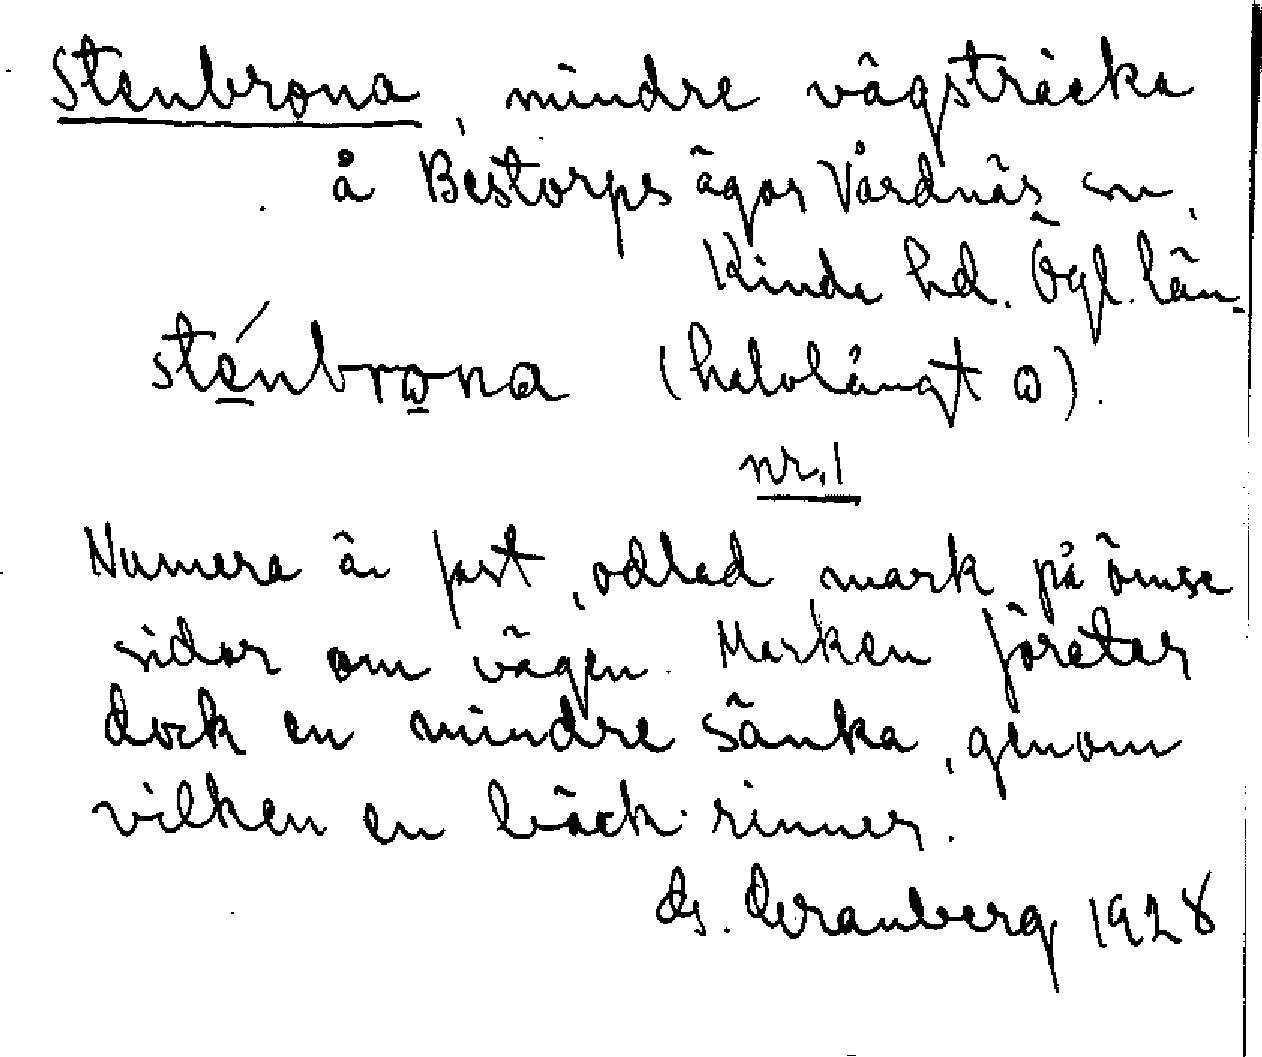 Stenbrona, mindre vägsträcka
å Bestorps ägor Vårdnäs sn,
Kinda hd. Ögl. län.
sténbrona (halvlångt o).
nr. 1
Numera är fast, odlad mark på ömse
sidor om vägen. Marken företer
dock en mindre sänka, genom
vilken en bäck rinner.
1928